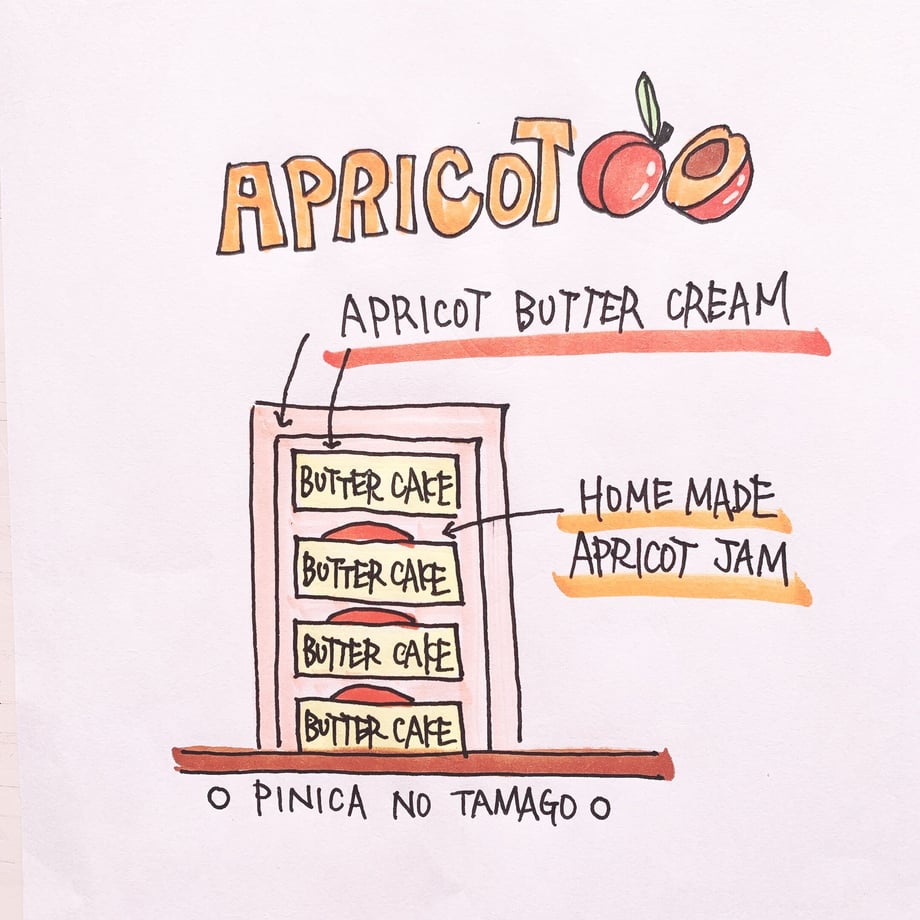 APRICOT
APRICOT BUTTER CREAM
BUTTER CAKE
HOME MADE
APRICOT JAM
BUTTER CAKE
BUTTER CAKE
BUTTER CAKE
O PINICA NO TAMAGO O